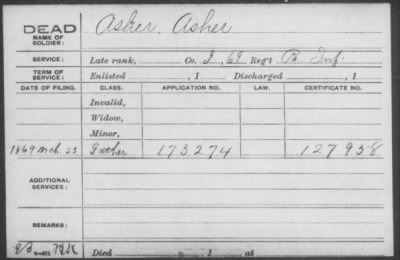 DEAD
NAME OF
SOLDIER:
Asher, Asher
SERVICE:
Late rank, Co. I, 69 Reg't Pa Inf.
TERM OF
SERVICE:
Enlisted , 1 Discharged , 1
DATE OF FILING. CLASS. APPLICATION NO. LAW. CERTIFICATE NO.
Invalid,
Widow,
Minor,
1869 Mch. 23 Father 173274 127958
ADDITIONAL
SERVICES:
REMARKS:
Died , 1 , at